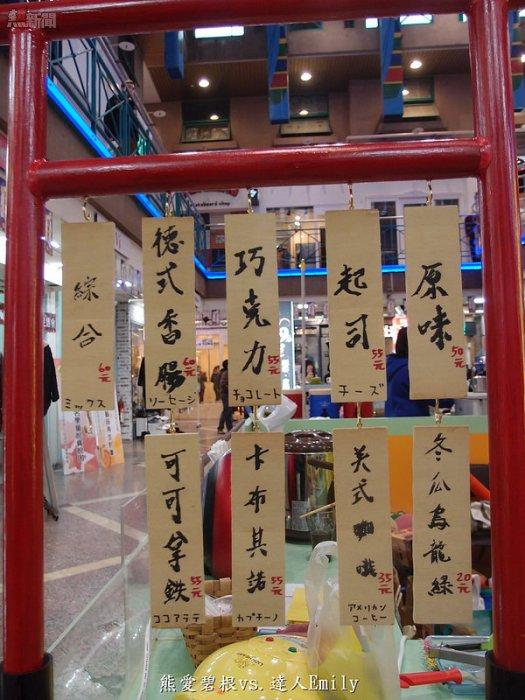 熊新聞
原味
50元
起司
55元
チーズ
巧克力
55元
チョコレート
德式香腸
60元
ソーセージ
綜合
60元
ミックス
冬瓜烏龍綠
20元
美式咖啡
35元
アメリカン
コーヒー
卡布其諾
55元
カプチーノ
可可拿鉄
55元
ココアラテ
熊愛碧根vs.達人Emily